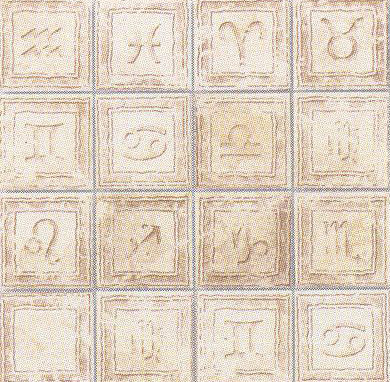 ♒ ♓ ♈ ♉
♊ ♋ ♎ ♍
♌ ♐ ♑ ♏
♍ ♊ ♋